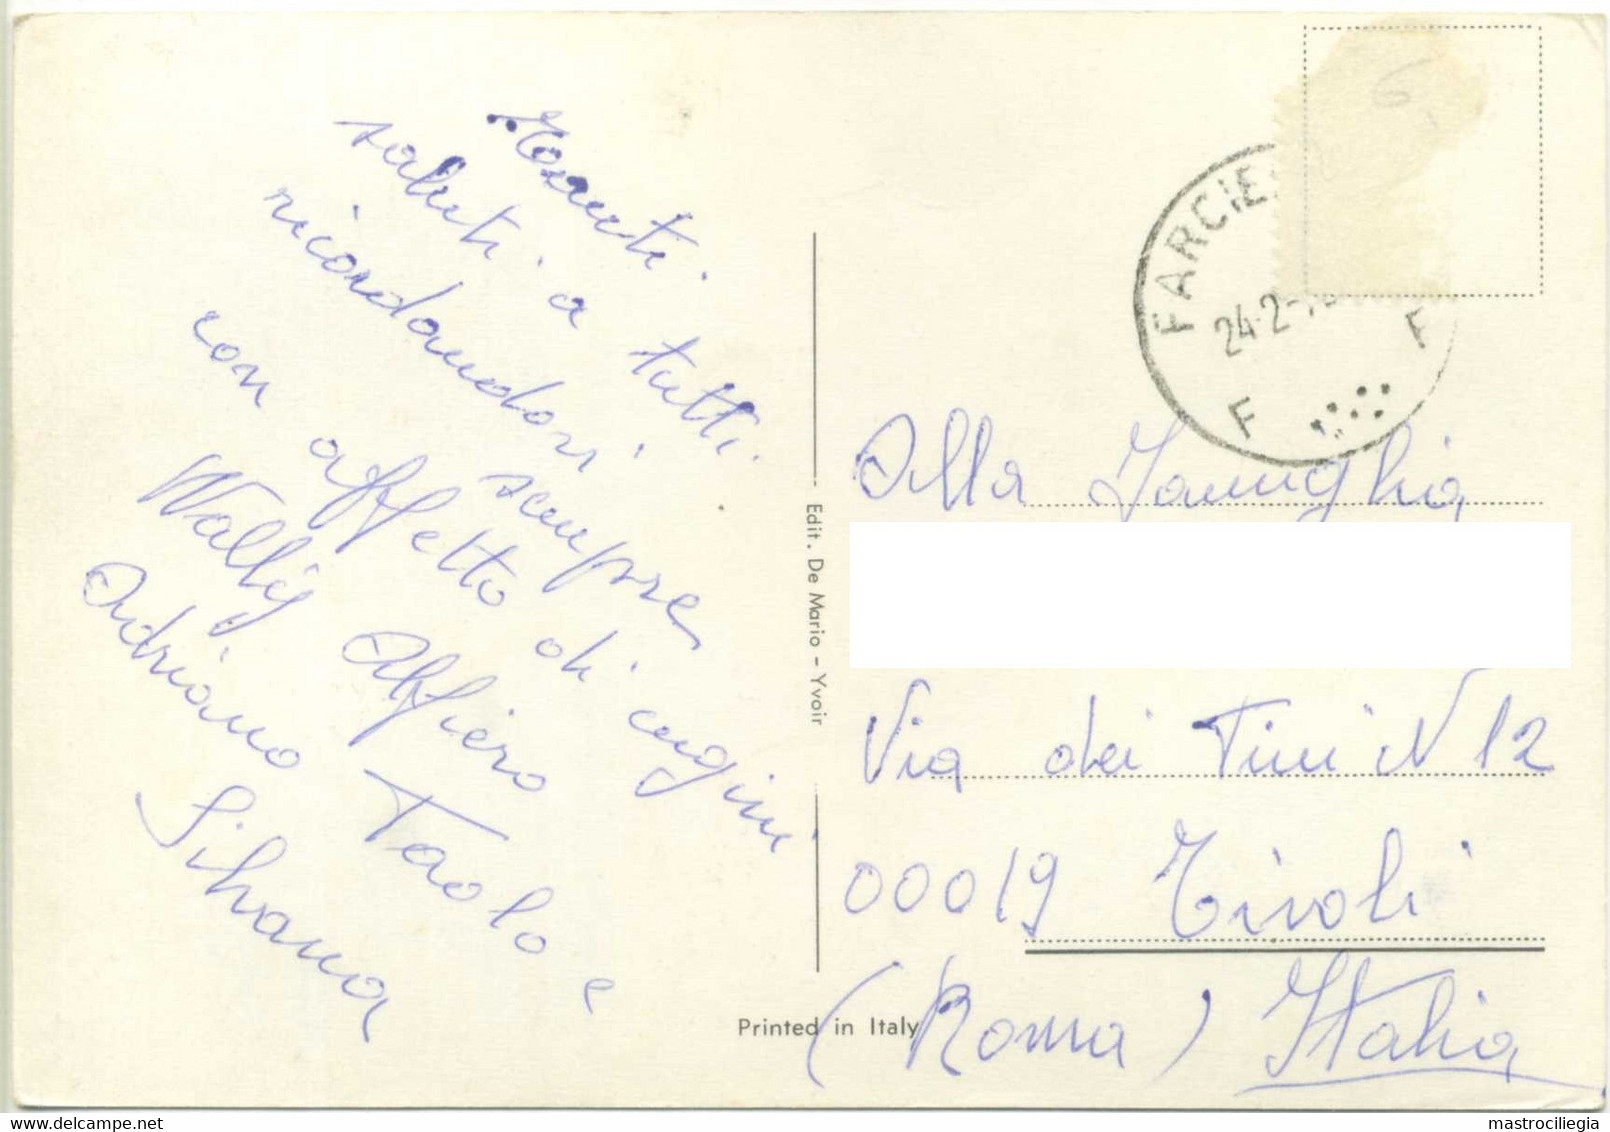 saluti a tutti.
ricordandovi sempre
con affetto di cugini
Wally Alfiero
Adriano Paolo e
Silvana
Edit. De Mario - Yvoir
Printed in Italy
FARCIE
24-2-
F F
Alla Famiglia
Via dei Tini N 12
00019 Tivoli
(Roma) Italia
mastrociliegia